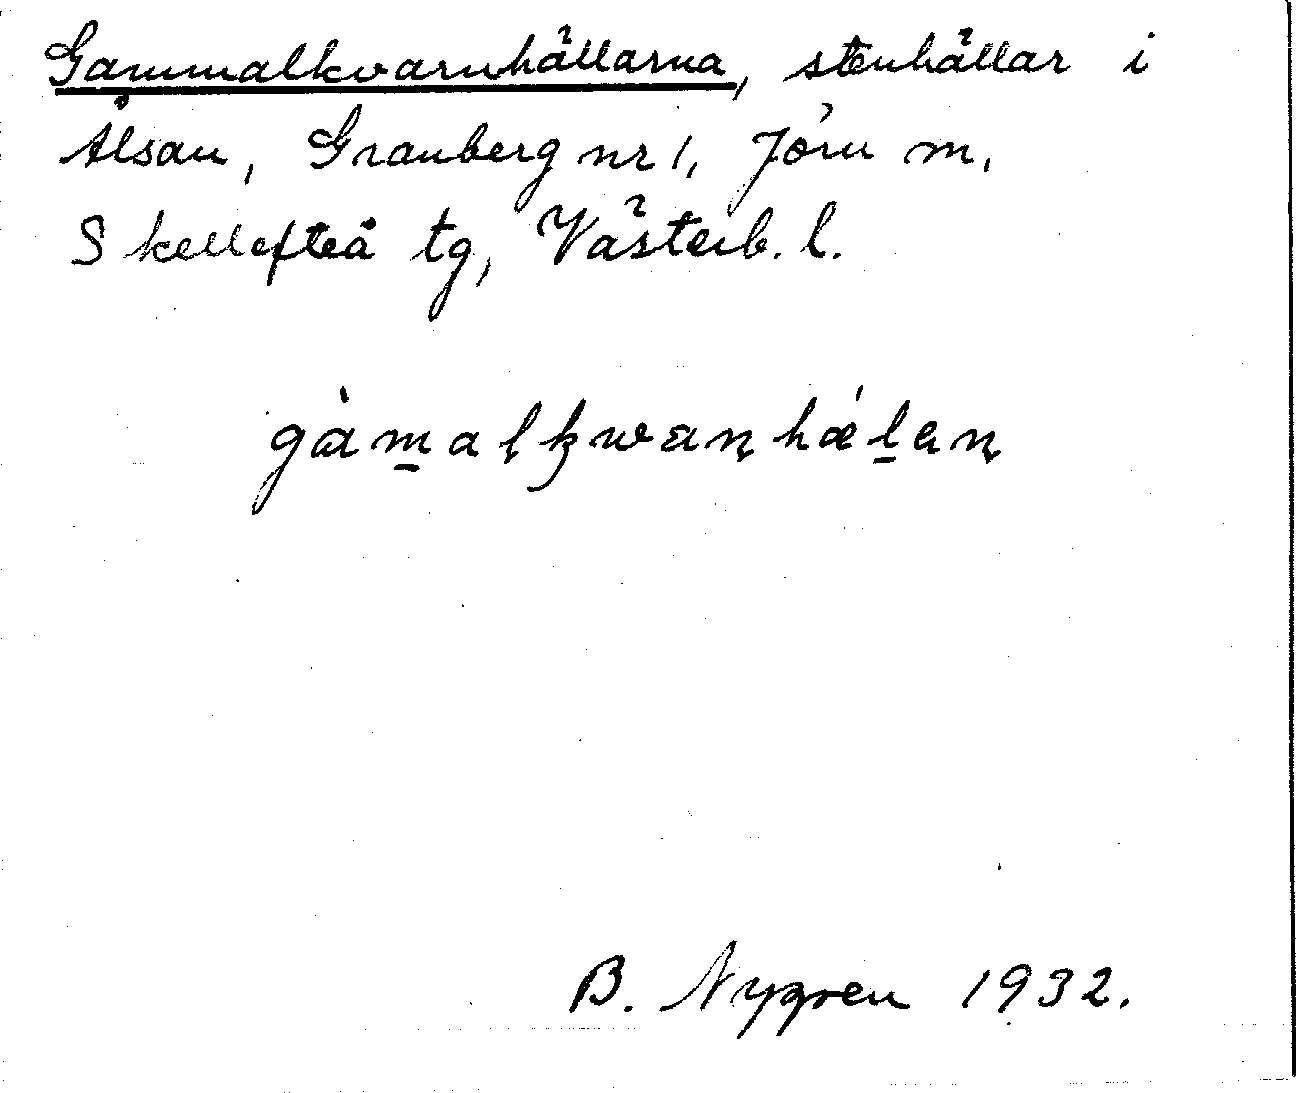 Gammalkvarnhällarna, stenhällar i
Ålsan, Granberg nr 1, Jörn m.
Skellefteå tg, Västerb. l.
gàm̱alkwanhǽḻen
B. Nygren 1932.